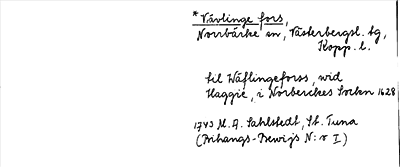 * Vävlinge fors,
Norrbärke sn, Västerbergsl. tg,
Kopp. l.
til Wäflingeforss, wid
Haggie, i Norberckes Sockn 1628
1743 M. A. Sahlstedt, St. Tuna
(Bihangs-Bewijs N:r I)